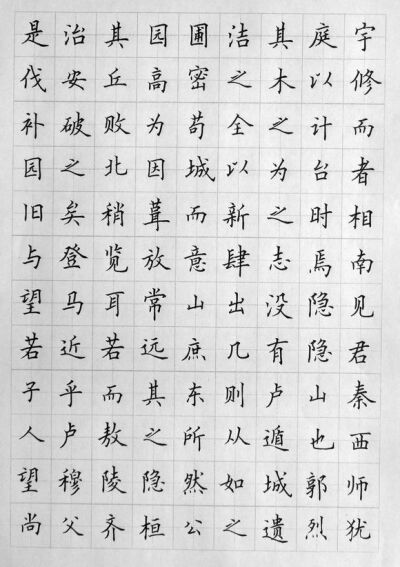 是治其园圃洁其庭宇
伐安丘高密之木以修
补破败为苟全之计而
园之北因城以为台者
旧矣稍葺而新之时相
与登览放意肆志焉南
望马耳常山出没隐见
若近若远庶几有隐君
子乎而其东则卢山秦
人卢敖之所从遁也西
望穆陵隐然如城郭师
尚父齐桓公之遗烈犹